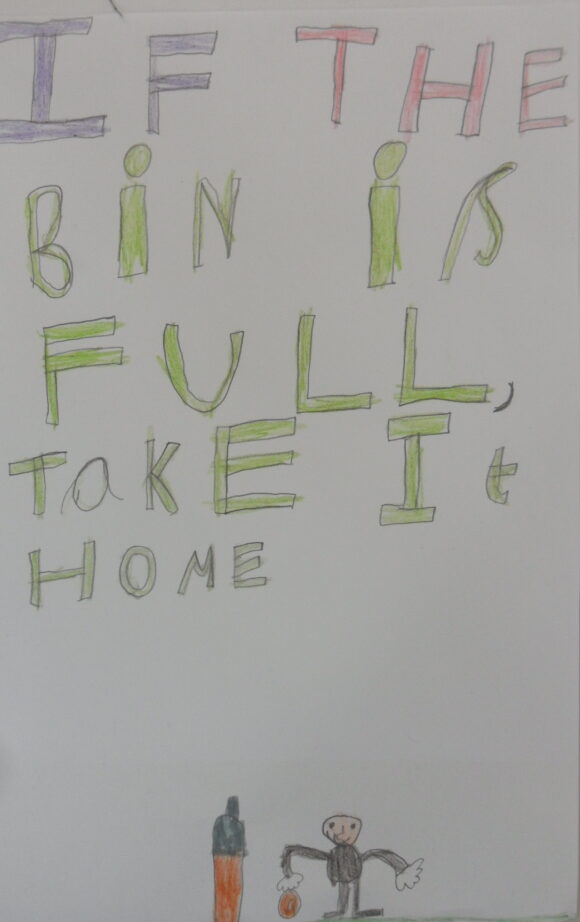 IF THE
BiN iS
FULL,
TaKE It
HOME